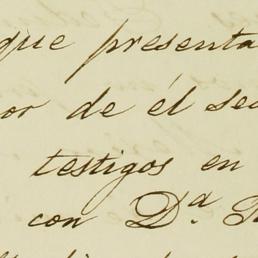 que presenta
or de él se
testigos en
con D.ª